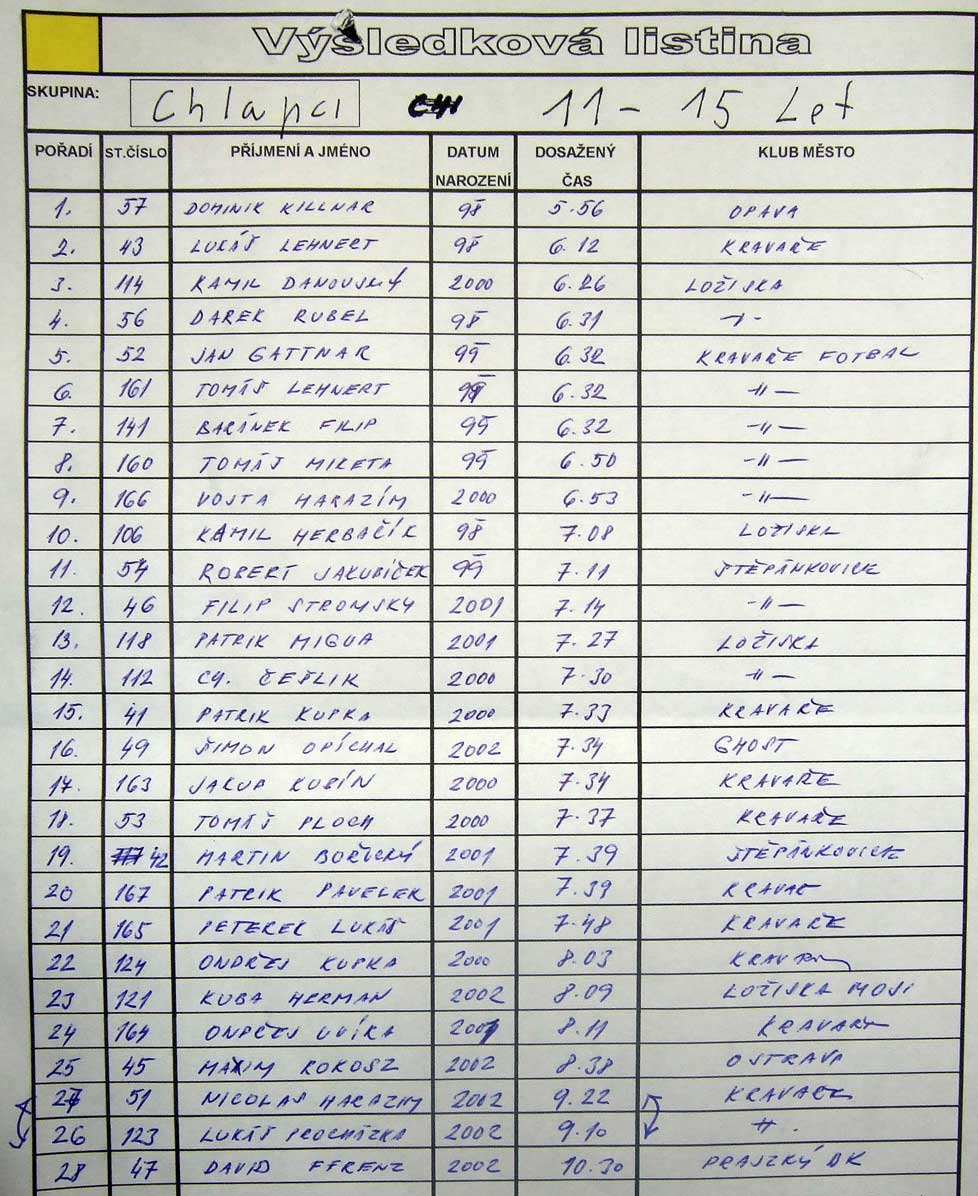 Výsledková listina
SKUPINA: Chlapci 11 - 15 Let
POŘADÍ ST.ČÍSLO PŘÍJMENÍ A JMÉNO DATUM NAROZENÍ DOSAŽENÝ ČAS KLUB MĚSTO
1. 57 DOMINIK KILLNAR 98 5.56 OPAVA
2. 43 LUKÁŠ LEHNERT 98 6.12 KRAVAŘE
3. 114 KAMIL DANOVSKÝ 2000 6.26 LOŽISKA
4. 56 DAREK RUBEL 98 6.31 -"-
5. 52 JAN GATTNAR 99 6.32 KRAVAŘE FOTBAL
6. 161 TOMÁŠ LEHNERT 6.32 -"-
7. 141 BARÁNEK FILIP 99 6.32 -"-
8. 160 TOMÁŠ MIKETA 99 6.50 -"-
9. 166 VOJTA HARAZÍM 2000 6.53 -"-
10. 106 KAMIL HERBAČÍK 98 7.08 LOŽISKA
11. 54 ROBERT JAKUBÍČEK 99 7.11 ŠTĚPÁNKOVICE
12. 46 FILIP STROMSKÝ 2001 7.14 -"-
13. 118 PATRIK MIGUA 2001 7.27 LOŽISKA
14. 112 ČEŠLIK 2000 7.30 -"-
15. 41 PATRIK KUPKA 2000 7.33 KRAVAŘE
16. 49 ŠIMON OPÍCHAL 2002 7.34 GHOST
17. 163 JAKUB KUBÍN 2000 7.34 KRAVAŘE
18. 53 TOMÁŠ PLOCH 2000 7.37 KRAVAŘE
19. 42 MARTIN BOŘICKÝ 2001 7.39 ŠTĚPÁNKOVICE
20 167 PATRIK PAVELEK 2001 7.39
21 165 PETEREK LUKÁŠ 2001 7.48 KRAVAŘE
22 124 ONDŘEJ KUPKA 2000 8.03
23 121 KUBA HERMAN 2002 8.09 LOŽISKA
24 164 ONDŘEJ 8.11 KRAVAŘE
25 45 MAXIM KOKOSZ 2002 8.38 OSTRAVA
27 51 NICOLAS HARAZIM 2002 9.22 KRAVAŘE
26 123 LUKÁŠ PROCHÁZKA 2002 9.10 -"-
28 47 DAVID FFRENZ 2002 10.30